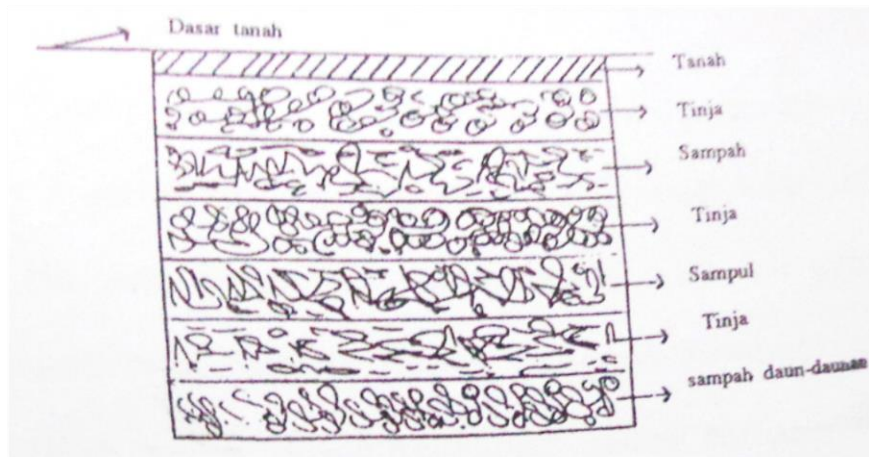 Dasar tanah
Tanah
Tinja
Sampah
Tinja
Sampul
Tinja
sampah daun-daunan